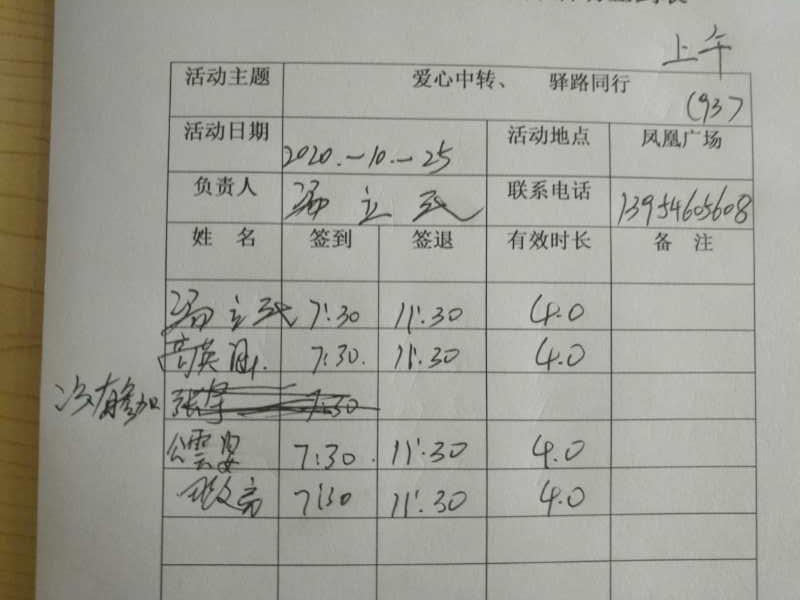 上午
活动主题 爱心中转、 驿路同行 (93)
活动日期 2020.-10.-25 活动地点 凤凰广场
负责人 冯立武 联系电话 13954605608
姓 名 签到 签退 有效时长 备 注
冯立武 7:30 11:30 4.0
高英 7:30. 11:30 4.0
没有参加 张 7:30
7:30. 11:30 4.0
7:30 11:30 4.0